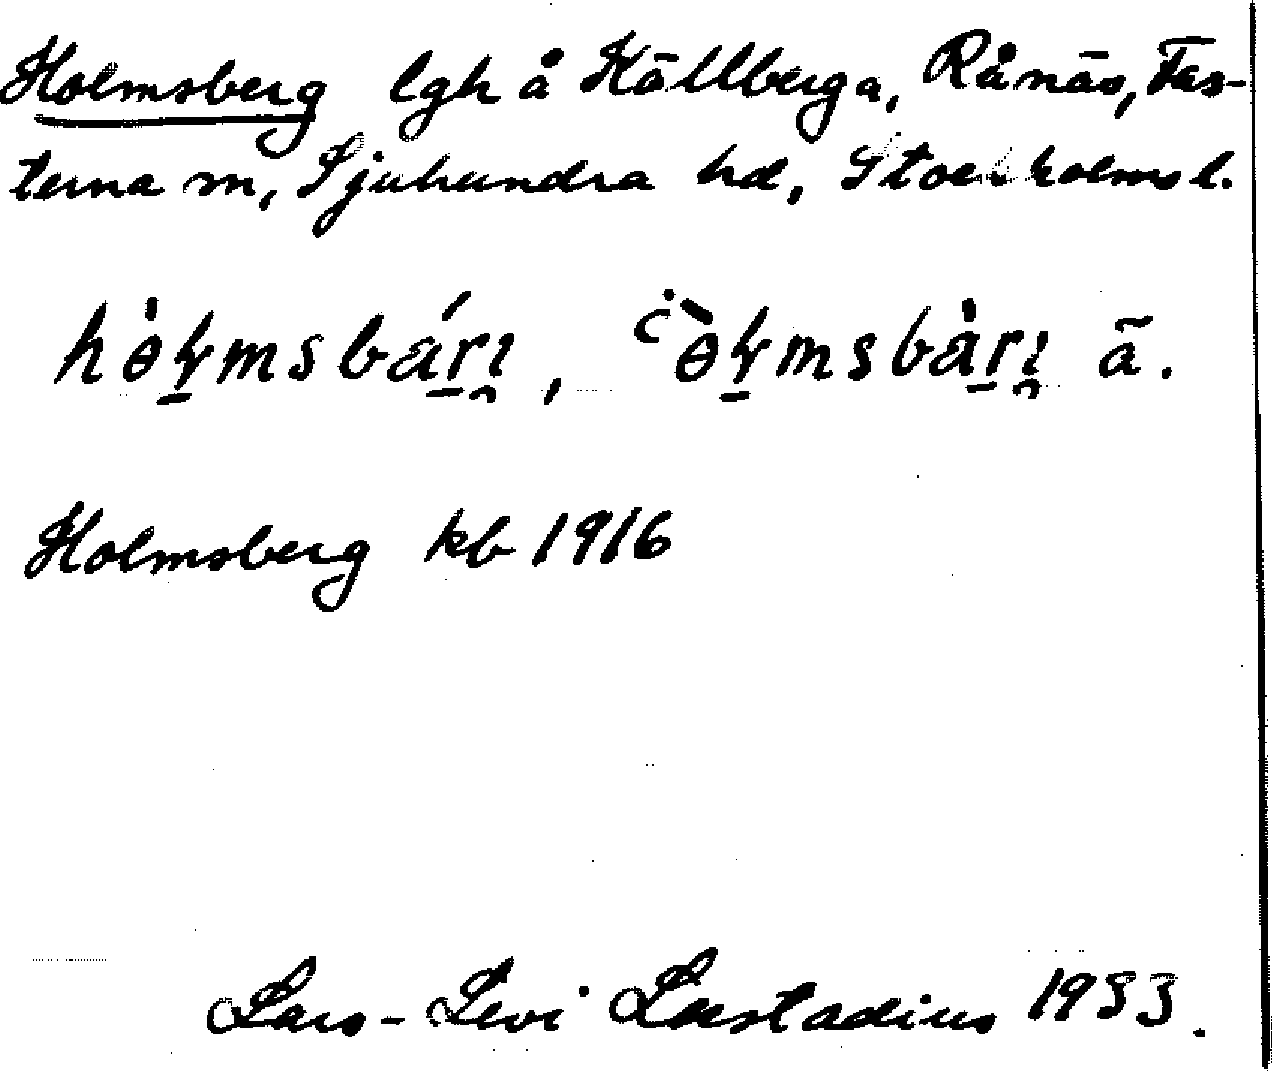 Holmsberg lgh å Källberga, Rånäs, Fas-
terna sn, Sjuhundra hd, Stockholms l.
hɵ̀ɽmsbárɩ, ɵ̀ɽmsbàrɩ ä.
Holmsberg kb 1916
Lars-Levi Læstadius 1953.